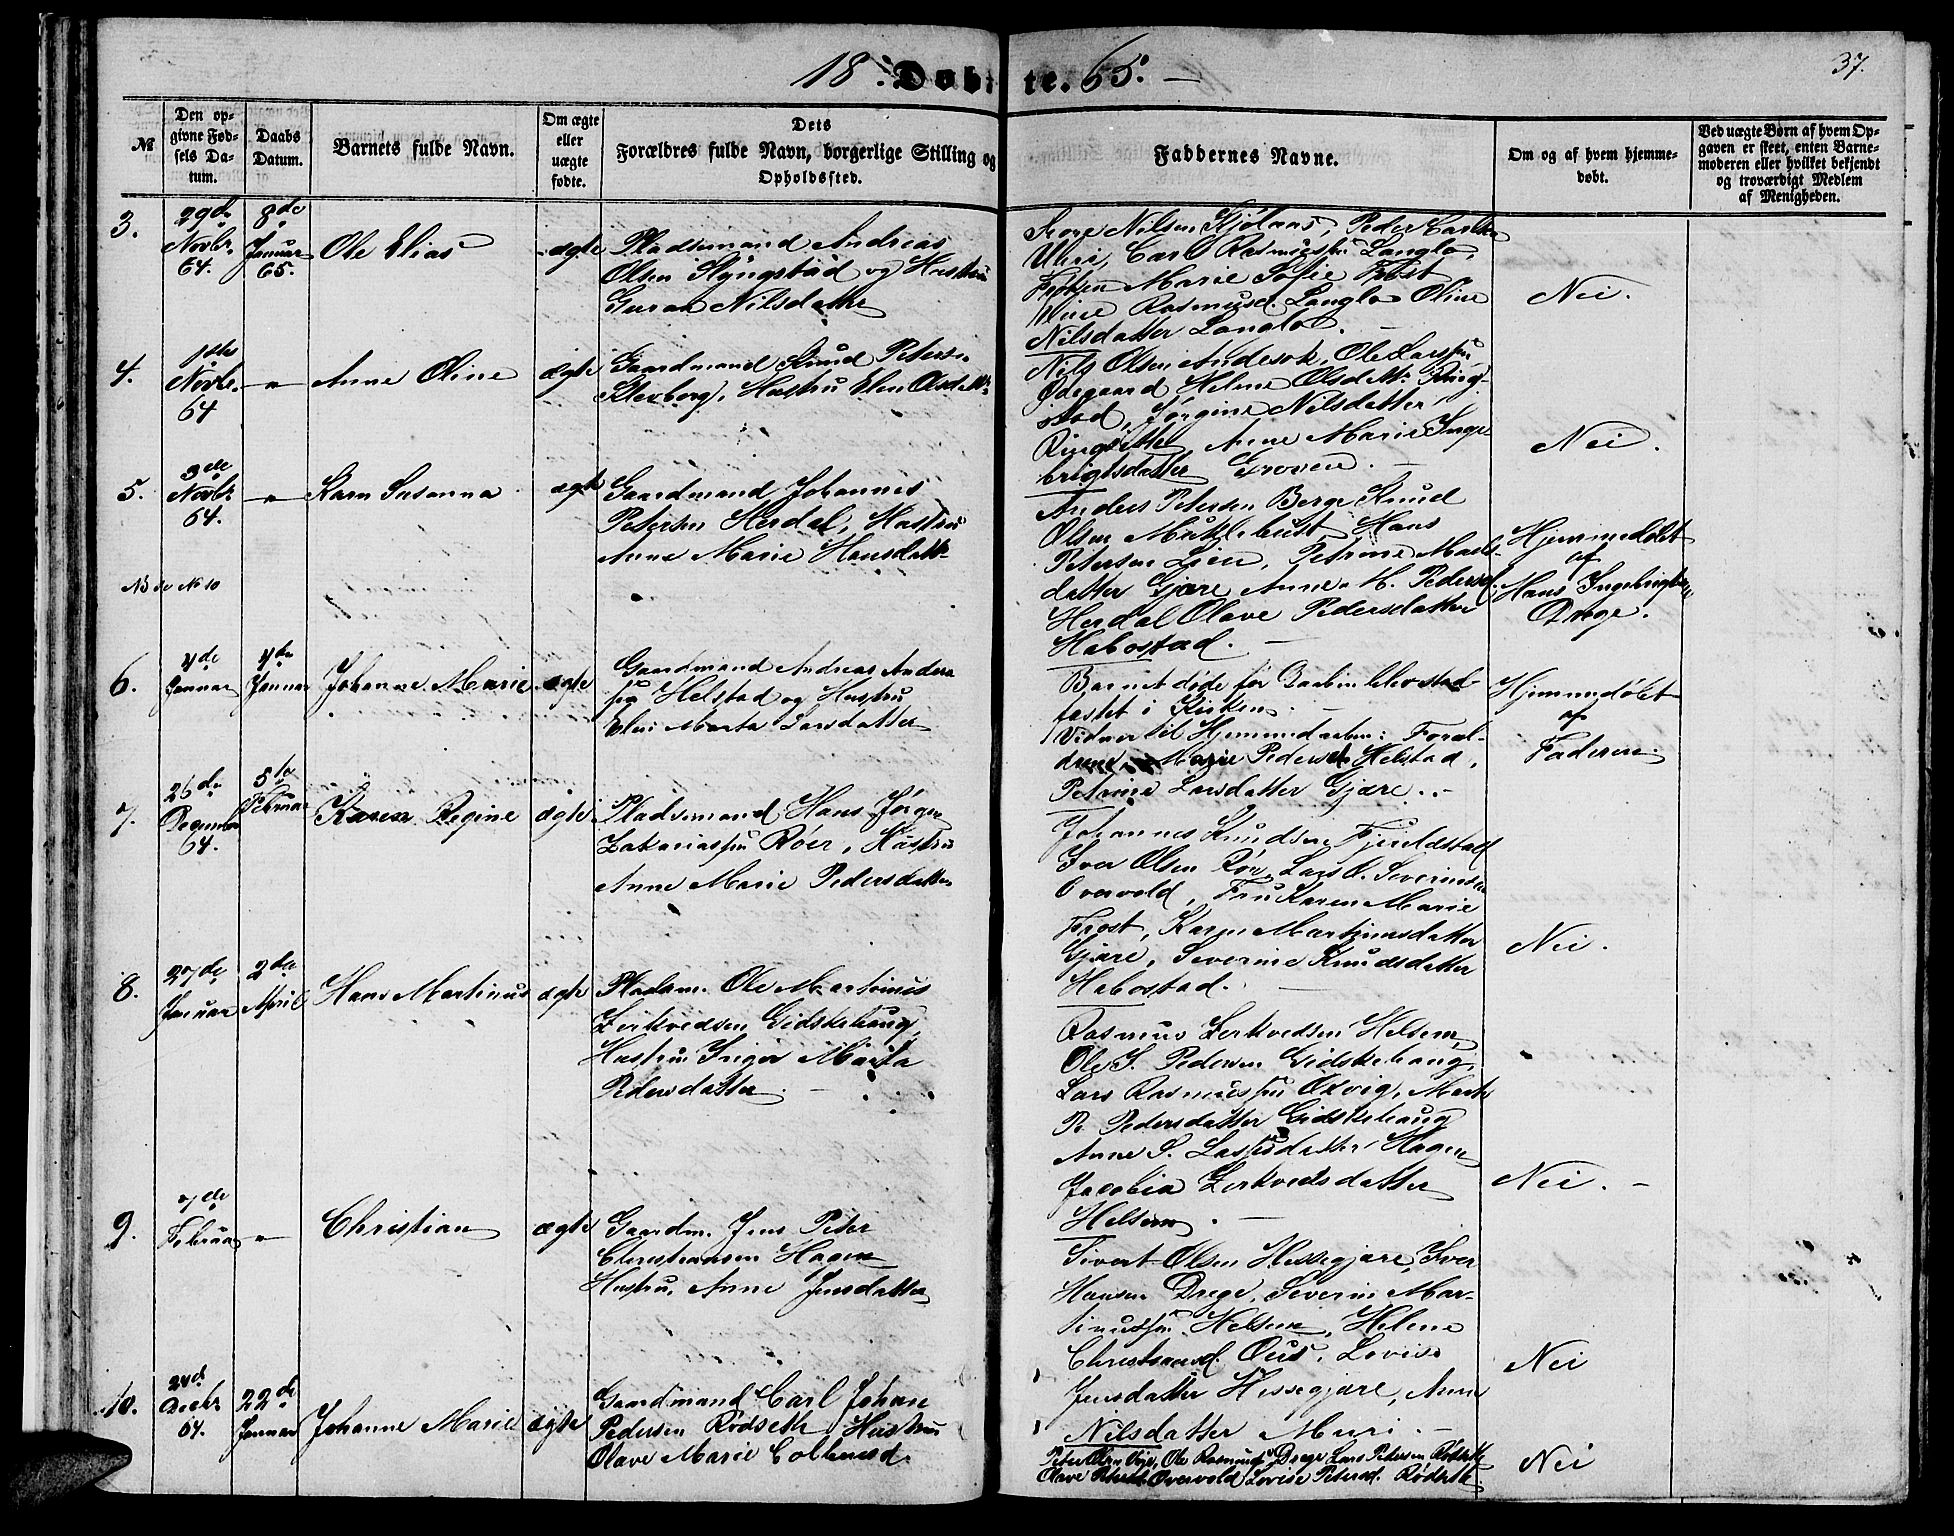 18 Døbte. 65.
37.
№
Den opgivne Fødsels Datum.
Daabs Datum.
Barnets fulde Navn.
Om ægte eller uægte fødte.
Dets Forældres fulde Navn, borgerlige Stilling og Opholdssted.
Faddernes Navne.
Om og af hvem hjemmedøbt.
Ved uægte Børn af hvem Opgaven er skeet, enten Barnemoderen eller hvilket bekjendt og troværdigt Medlem af Menigheden.
3.
29de Novbr. 64.
8de Januar 65.
Ole Elias
ægte
Pladsemand Andreas
Olsen Slyngstad og Hustru
Guran Nilsdatter
Nilsen Gjølaas, Peder
Uhri, Carl Rasmussen Langlo,
Marie Sofie Frost
Rasmusd. Langlo Oline
Nilsdatter Langlo.
Nei.
4.
1ste Novbr. 64
"
Anne Oline
ægte
Gaardmand Knud Peters.
Klevberg, Hustru Elen Olsdattr.
Nils Olsen Andestok, Ole Larssen
Ødegaard, Helene Olsdattr Ring-
stad, Jørgine Nilsdatter
Ringsætter Anne Marie Inge
brigtsdatter Groven.
Nei.
5.
3die Novbr. 64.
"
Karn Susanna
ægte
Gaardmand Johannes
Petersen Herdal, Hustru
Anne Marie Hansdatter
Anders Petersen Berge Knud
Olsen Müklebust, Hans
Petersen Lien, Petrine Mads-
datter Gjære Anne M. Pedersd.
Herdal Olave Pedersdatter
Habostad.
Hjemmedøbt
af
Hans Ingebrigtsen
Drege.
NB se No 10
6.
4de Januar
4de Januar
Johanne Marie
ægte
Gaardmand Andreas Anders
sen Helstad og Hustru
Elen Marta Larsdatter
Barnet døde før Daaben blev stad-
fæstet i Kirken.
Vidner til Hjemmedaaben: Foræl-
drene, Marie Pedersd. Helstad,
Petrine Larsdatter Gjære.
Hjemmedøbt
af
Faderen.
7.
26de December 64.
5te Februar
Karen Regine
ægte
Pladsemand Hans Jørgen
Zakariassen Røer, Hustru
Anne Marie Pedersdatter
Johannes Knudsen Fjeldstad
Iver Olsen Rør, Lars O. Severinsen
Overvold, Fru Karen Marie
Frost, Karn Martinusdatter
Gjære, Severine Knudsdatter
Habostad.
Nei.
8.
27de Januar
2den April
Hans Martinus
ægte
Pladsm. Ole Martinus
Zerkvedsen Gidskehaug,
Hustru Inger Marta
Pedersdatter.
Rasmus Zerkvedsen Helsem,
Ole S. Pedersen Gidskehaug,
Lars Rasmussen Oxvig, Marte
P. Pedersdatter Gidskehaug
Anne S. Lassesdatter Hagen
Jacobia Zerkvedsdatter
Helsem.
Nei.
9.
7de Februar
"
Christian
ægte
Gaardm. Jens Peter
Christiansen Hagen
Hustru, Anne Jensdatter
Sivert Olsen Hessegjære, Iver
Hansen Drege, Severin Mar-
tinussen Helsem, Helene
Christiansd. Ous, Lovise
Jensdatter Hessegjære, Anne
Nilsdatter Muri.
Nei
10.
24de Decbr. 64.
22de Januar
Johanne Marie
ægte
Gaardmand Carl Johan
Pedersen Rødseth Hustru
Olave Marie Colbensd.
Peter Olsen Ole Rasmussen Drege Lars Petersen Rødseth
Olave Overvold Lovise Petersd. Rødseth.
Nei